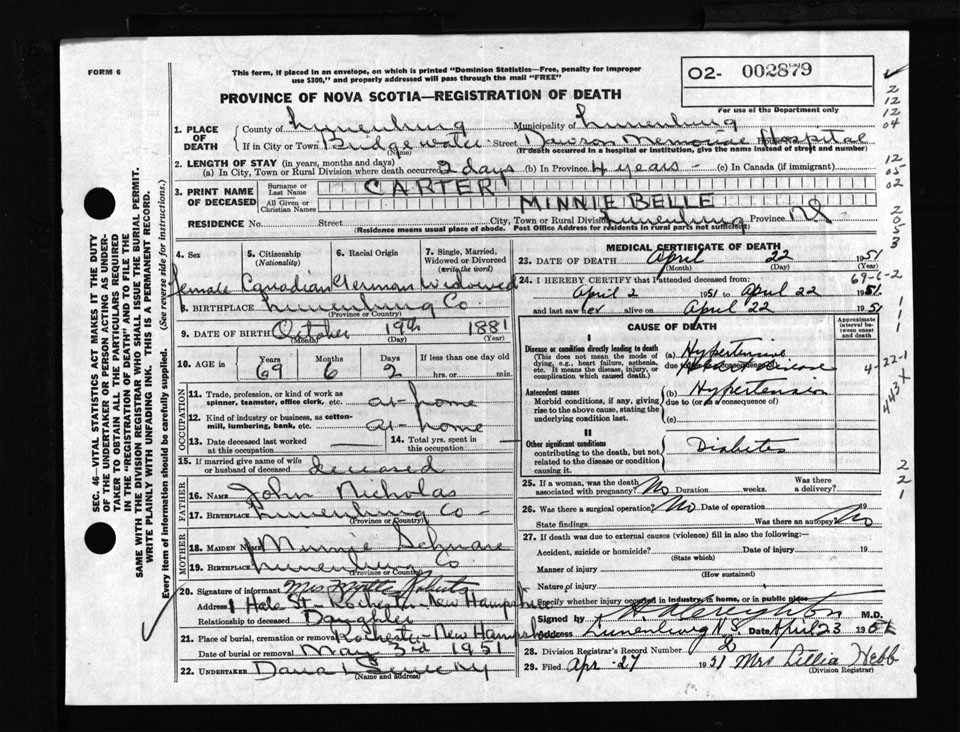 FORM 6
This form, if placed in an envelope, on which is printed "Dominion Statistics—Free, penalty for improper
use $300," and properly addressed will pass through the mail "FREE"
O2- 002879
PROVINCE OF NOVA SCOTIA—REGISTRATION OF DEATH
For use of the Department only
1. PLACE OF DEATH
County of Lunenburg Municipality of Lunenburg
If in City or Town Bridgewater Street Dawson Memorial Hospital
(Name) (If death occurred in a hospital or institution, give the name instead of street and number)
2. LENGTH OF STAY (in years, months and days)
(a) In City, Town or Rural Division where death occurred 2 days (b) In Province 4 years (c) In Canada (if immigrant)
3. PRINT NAME OF DECEASED
Surname or Last Name CARTER
All Given or Christian Names MINNIE BELLE
RESIDENCE No. Street City, Town or Rural Division Lunenburg Province NS
(Residence means usual place of abode. Post Office Address for residents in rural parts not sufficient)
4. Sex
5. Citizenship (Nationality)
6. Racial Origin
7. Single, Married, Widowed or Divorced (write the word)
female Canadian German Widowed
8. BIRTHPLACE Lunenburg Co.
(Province or Country)
9. DATE OF BIRTH October 19th 1881
(Month) (Day) (Year)
10. AGE in
Years Months Days If less than one day old
69 6 2 hrs. or min.
OCCUPATION
11. Trade, profession, or kind of work as spinner, teamster, office clerk, etc. at-home
12. Kind of industry or business, as cotton-mill, lumbering, bank, etc. at-home
13. Date deceased last worked at this occupation
14. Total yrs. spent in this occupation
15. If married give name of wife or husband of deceased deceased
FATHER
16. NAME John Nicholas
17. BIRTHPLACE Lunenburg Co-
(Province or Country)
MOTHER
18. MAIDEN NAME Minnie
19. BIRTHPLACE Lunenburg Co
(Province or Country)
20. Signature of informant Mrs
Address 1 Hale St- Rochester- New Hampshire
Relationship to deceased Daughter
21. Place of burial, cremation or removal Rochester- New Hampshire
Date of burial or removal May 3rd 1951
22. UNDERTAKER
(Name and address)
MEDICAL CERTIFICATE OF DEATH
23. DATE OF DEATH April 22 1951
(Month) (Day) (Year)
24. I HEREBY CERTIFY that I attended deceased from:
69-6-2
April 2 1951 to April 22 1951
and last saw her alive on April 22 1951
CAUSE OF DEATH
Approximate interval between onset and death
I
Disease or condition directly leading to death
(This does not mean the mode of dying, e.g., heart failure, asthma, etc. It means the disease, injury, or complication which caused death.)
(a) Hypertensive
due to (or as a consequence of)
Disease
Antecedent causes
Morbid conditions, if any, giving rise to the above cause, stating the underlying condition last.
(b) Hypertension
due to (or as a consequence of)
(c)
II
Other significant conditions
contributing to the death, but not related to the disease or condition causing it.
Diabetes
25. If a woman, was the death associated with pregnancy? No Duration weeks. Was there a delivery?
26. Was there a surgical operation? No Date of operation 19
State findings Was there an autopsy? No
27. If death was due to external causes (violence) fill in also the following:—
Accident, suicide or homicide? Date of injury 19
(State which)
Manner of injury
(How sustained)
Nature of injury
Specify whether injury occurred in industry, in home, or in public place
Signed by H A Creighton M.D.
Address Lunenburg N.S. Date April 23 195
28. Division Registrar's Record Number
29. Filed Apr. 27 1951 Mrs Lillia Hebb
(Division Registrar)
SEC. 46—VITAL STATISTICS ACT MAKES IT THE DUTY
OF THE UNDERTAKER OR PERSON ACTING AS UNDER-
TAKER TO OBTAIN ALL THE PARTICULARS REQUIRED
IN THE "REGISTRATION OF DEATH" AND TO FILE THE
SAME WITH THE DIVISION REGISTRAR WHO SHALL ISSUE THE BURIAL PERMIT.
WRITE PLAINLY WITH UNFADING INK. THIS IS A PERMANENT RECORD.
Every item of information should be carefully supplied. (See reverse side for instructions.)
2
12
12
04
12
05
02
2
0
5
3
1
1
1
22-1
4
443 X
2
2
1